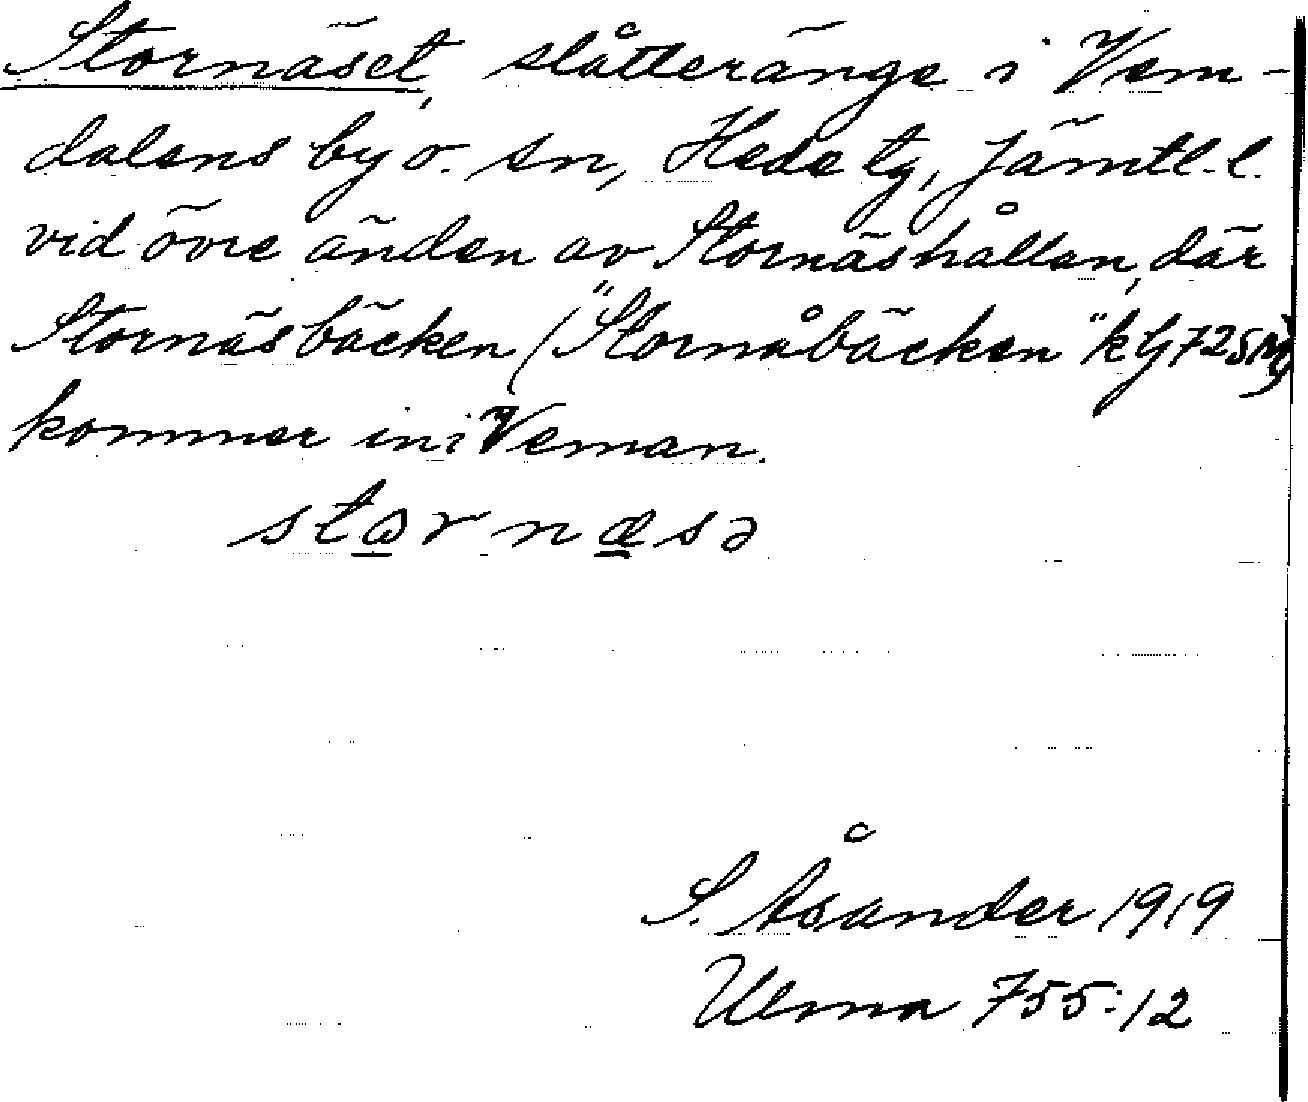 Stornäset, slåtteränge i Vem-
dalens by o. sn, Hede tg, Jämtl. l.
vid övre änden av Stornäshållen, där
Stornäsbäcken ("Stornåbäcken" k bl 72 SM)
kommer in i Veman.
starnæsə
S. Åsander 1919
Ulma 755:12